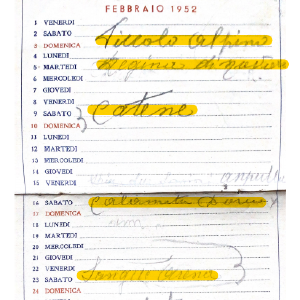 FEBBRAIO 1952
1 VENERDI
2 SABATO Piccolo alpino
3 DOMENICA
4 LUNEDI
5 MARTEDI
6 MERCOLEDI
7 GIOVEDI
8 VENERDI
9 SABATO Catene
10 DOMENICA
11 LUNEDI
12 MARTEDI
13 MERCOLEDI
14 GIOVEDI
15 VENERDI
16 SABATO
17 DOMENICA
18 LUNEDI
19 MARTEDI
20 MERCOLEDI
21 GIOVEDI
22 VENERDI
23 SABATO
24 DOMENICA
25 LUNEDI